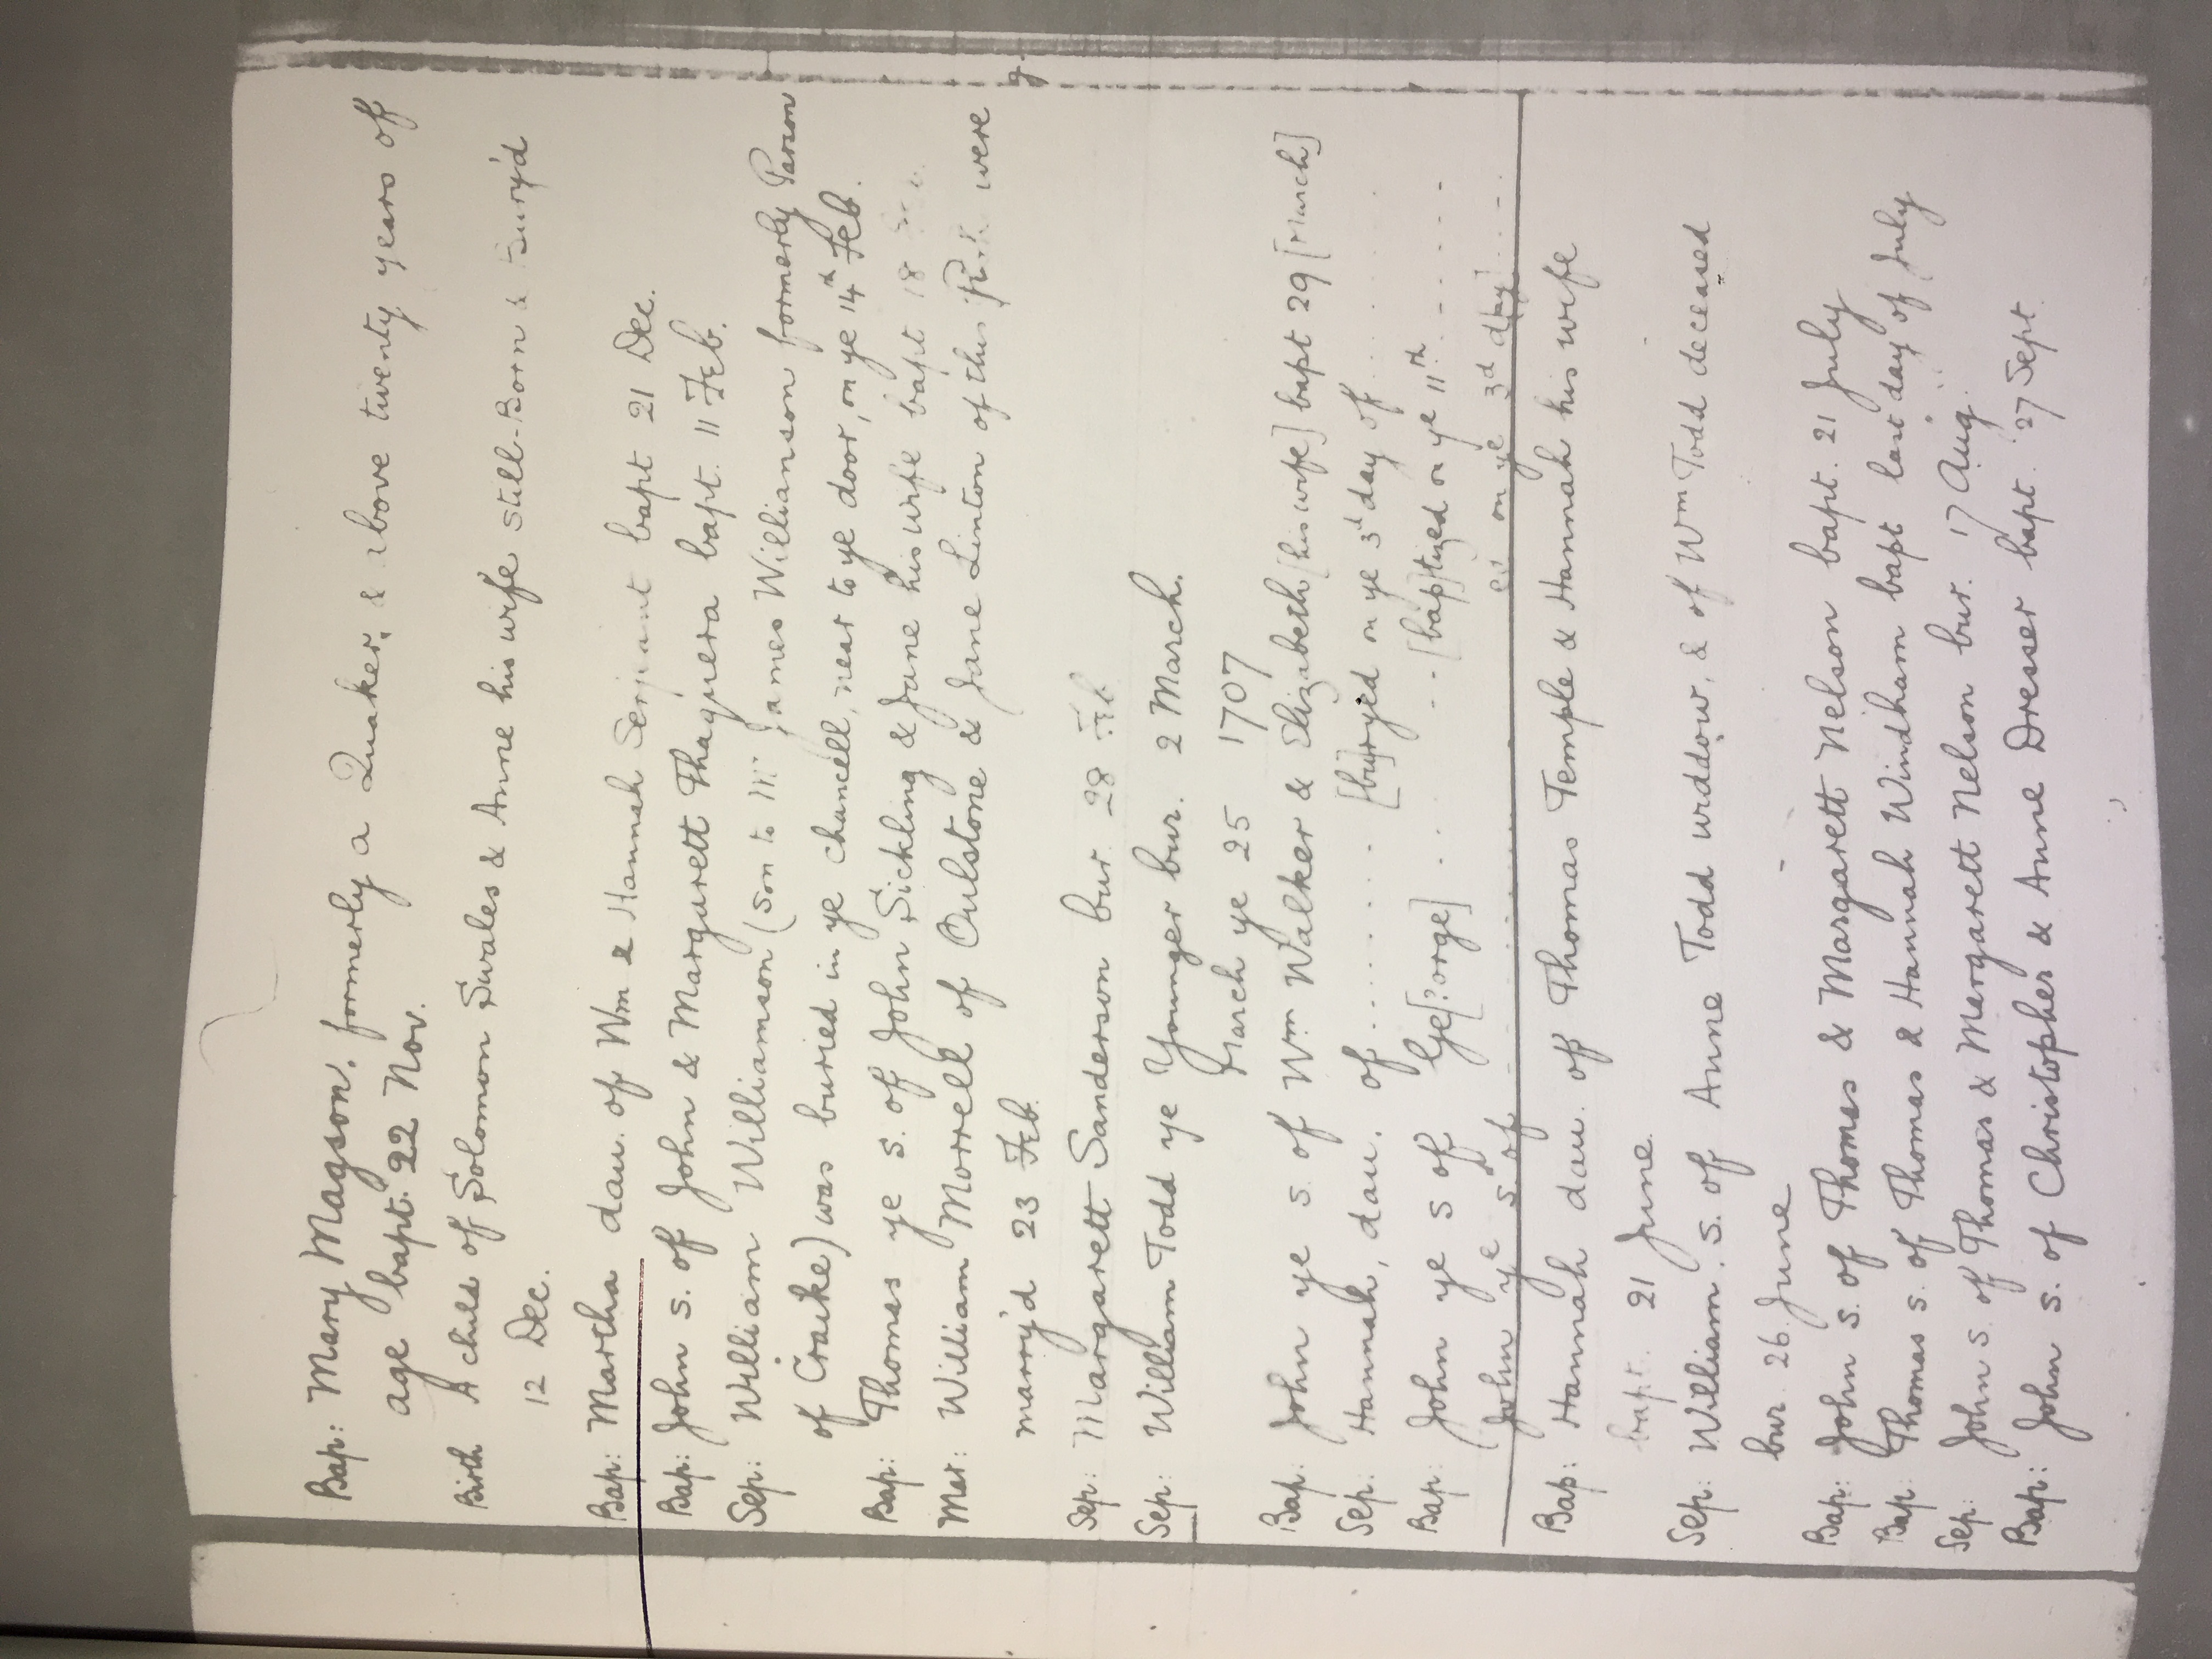 Bap: Mary Magson, formerly a Quaker, & above twenty years of
age bapt. 22 Nov.
Birth A child of Solomon Swales & Anne his wife still-Born & bury'd
12 Dec.
Bap: Martha dau. of Wm & Hannah Serjeant bapt 21 Dec.
Bap: John s. of John & Margarett Thaquera bapt. 11 Feb.
Sep: William Williamson (son to Mr James Williamson formerly Parson
of Craike) was buried in ye chancell, near to ye door, on ye 14th Feb.
Bap: Thomas ye s. of John Sickling & Jane his wife bapt 18
Mar: William Morrell of Oulstone & Jane Linton of this were
marry'd 23 Feb.
Sep: Margarett Sanderson bur. 28 Feb
Sep: William Todd ye Younger bur. 2 March.
March ye 25 1707
Bap: John ye s. of Wm Walker & Elizabeth [his wife] bapt 29 [March]
Sep: Hannah, dau. of ........ [bu]ryed on ye 3d day of ....
Bap: John ye s of Ge[?orge] .. -- [bap]tized on ye 11th ------
(John ye s of ........ ed on ye 3d day) ....
Bap: Hannah dau. of Thomas Temple & Hannah his wife
bapt. 21 June.
Sep: William. s. of Anne Todd widdow, & of Wm Todd deceased
bur. 26. June
Bap: John s. of Thomas & Margarett Nelson bapt. 21 July
Bap: Thomas s. of Thomas & Hannah Windham bapt last day of July
Sep: John s. of Thomas & Margarett Nelson bur. 17 Aug.
Bap: John s. of Christopher & Anne Dresser bapt. 27 Sept.